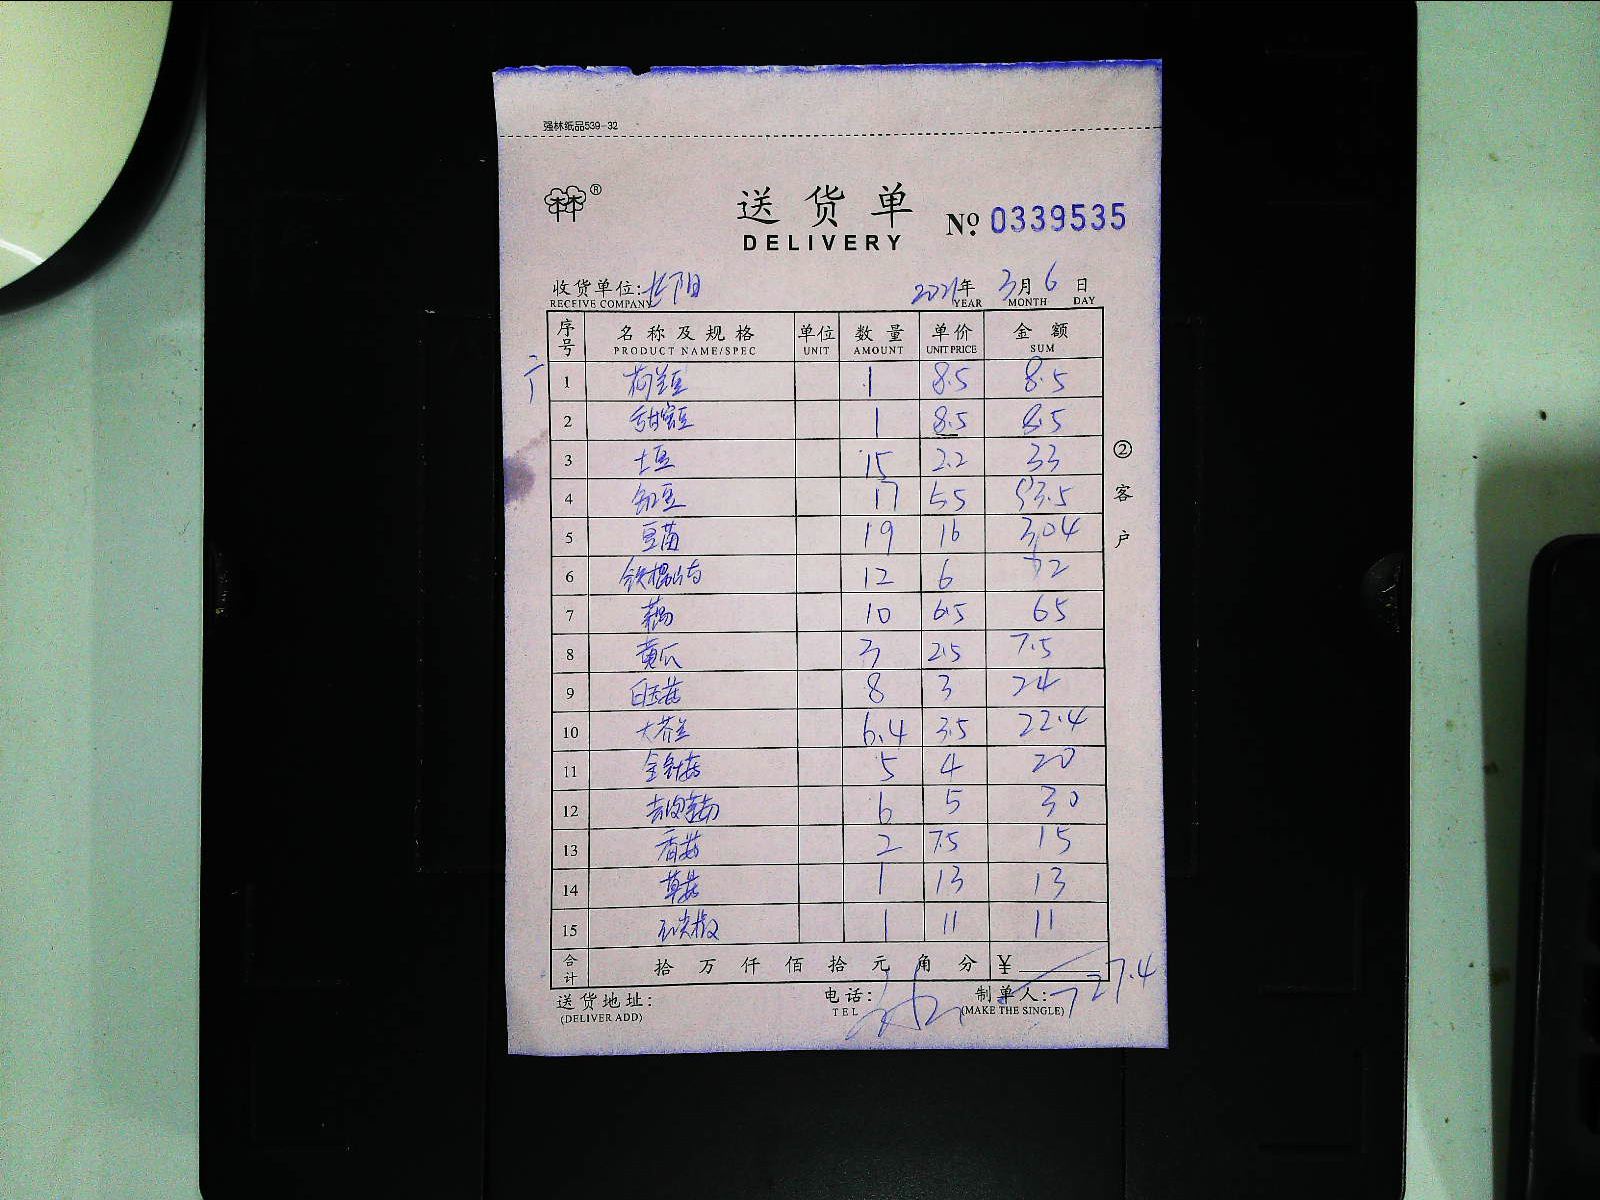 强林纸品539-32
林林®
送货单
Nº 0339535
DELIVERY
收货单位: 长阳 2021年 3月 6日
RECEIVE COMPANY YEAR MONTH DAY
序号 名称及规格 单位 数量 单价 金额
PRODUCT NAME/SPEC UNIT AMOUNT UNIT PRICE SUM
1 荷兰豆 1 8.5 8.5
2 甜蜜豆 1 8.5 8.5
3 土豆 15 2.2 33
4 红豆 17 5.5 93.5
5 豆苗 19 16 304
6 铁棍山药 12 6 72
7 藕 10 6.5 65
8 黄瓜 3 2.5 7.5
9 白玉菇 8 3 24
10 大芥兰 6.4 3.5 22.4
11 金针菇 5 4 20
12 去皮莴笋 6 5 30
13 香菇 2 7.5 15
14 草菇 1 13 13
15 尖椒 1 11 11
合计 拾 万 仟 佰 拾 元 角 分 ¥ 727.4
送货地址: 电话: 制单人:
(DELIVER ADD) TEL (MAKE THE SINGLE)
②客户